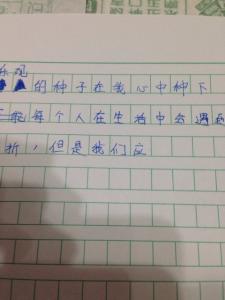 乐观
的种子在我心中种下
每个人在生活中会遇到
折，但是我们应